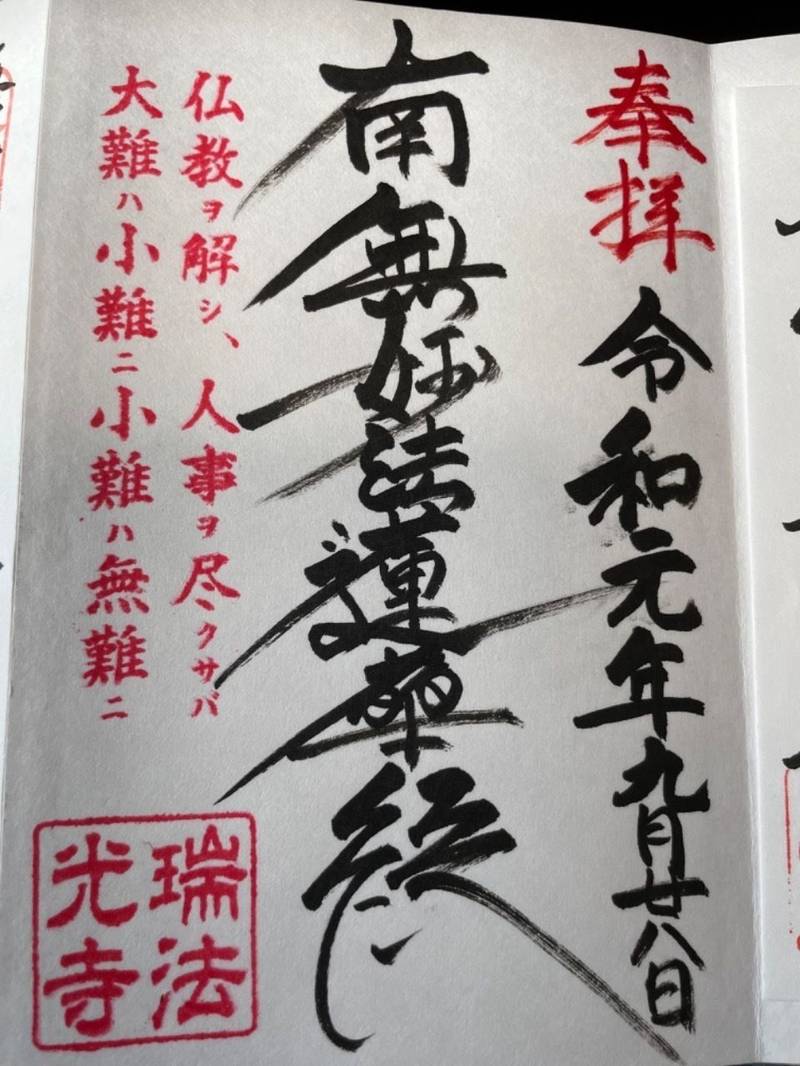 奉拝
令和元年九月廿八日
南無妙法蓮華経
仏教ヲ解シ、人事ヲ尽クサバ
大難ハ小難ニ小難ハ無難ニ
瑞法
光寺